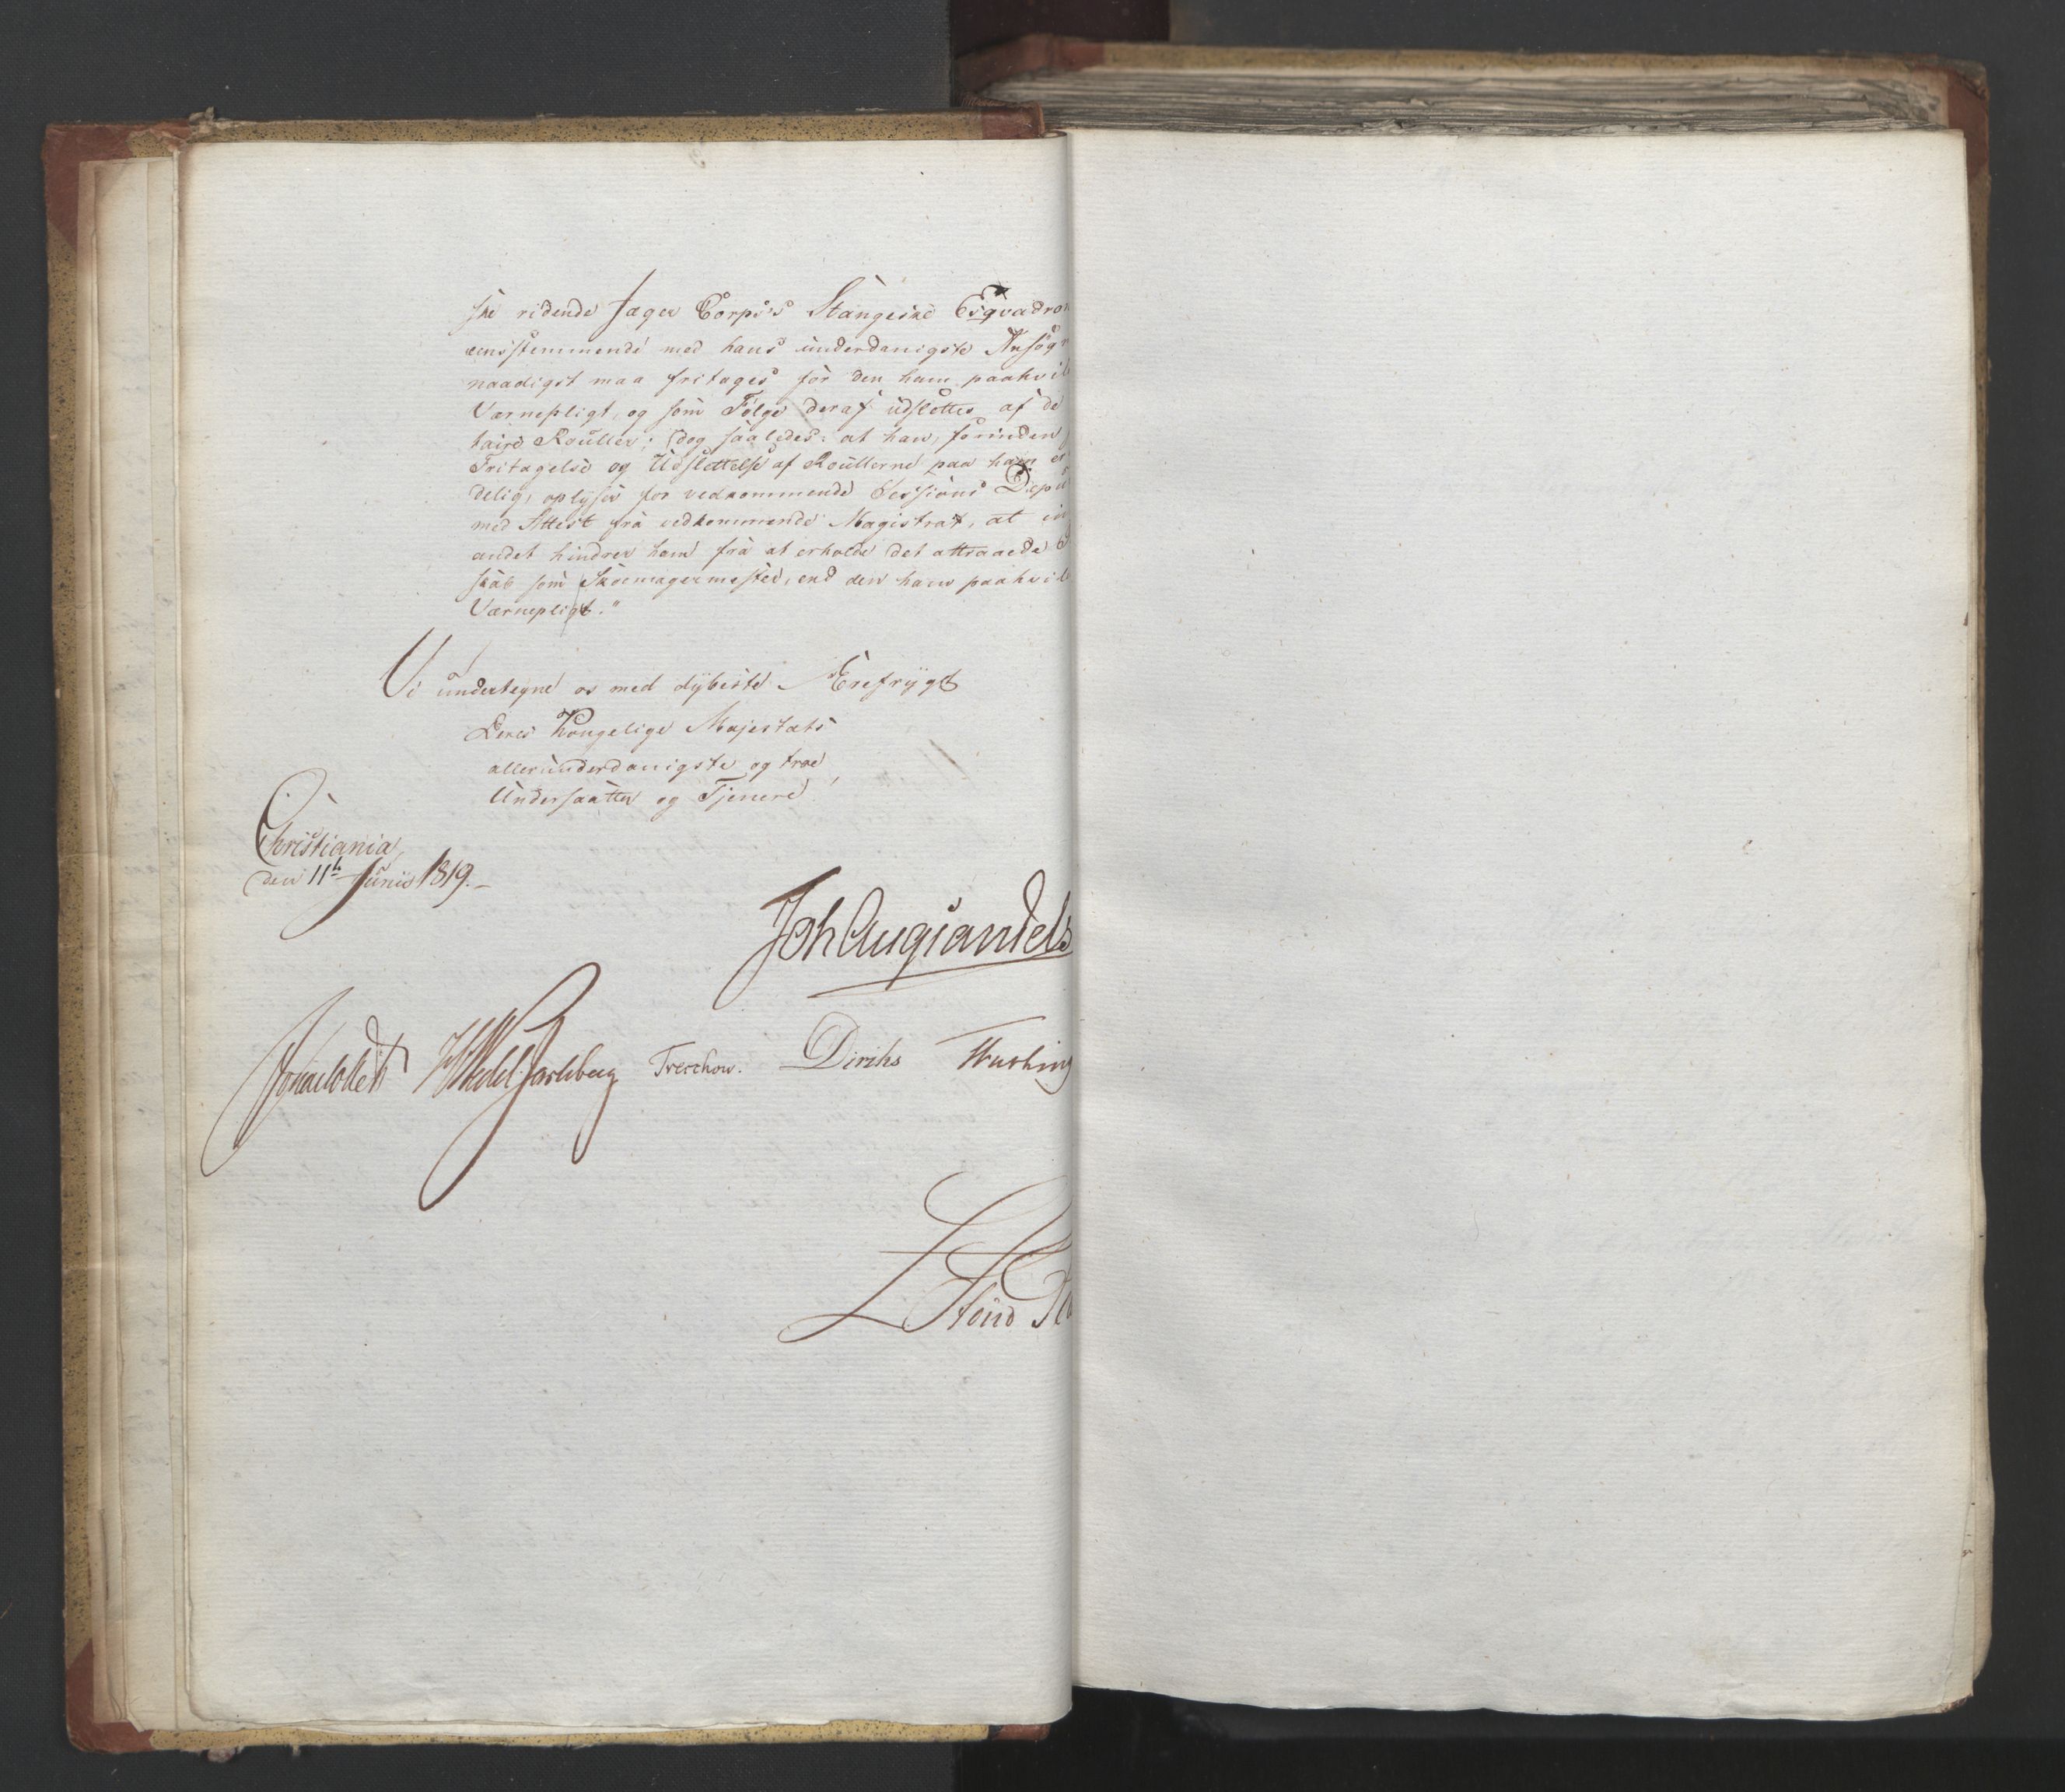 ske ridende Jæger Corps's Stangeske Esqvadron
eensstemmende med hans underdanigste Ansøgn
naadigst maa fritages for den ham paahvil
Værnepligt, og som Følge deraf udslettes af de
taire Rouller; dog saaledes: at han, forinden
Fritagelse og Udslettelse af Roullerne paa ham er
delig, oplyser for vedkommende Sessions Depu
med Attest fra vedkommende Magistrat, at in
andet hindrer ham fra at erholde det attraaede
skab som Skoemagermester, end den ham paahvil
Værnepligt."
Vi undertegne os med dybeste Ærefrygt
Deres Kongelige Majestæts
allerunderdanigste og troe
Undersaatter og Tjenere
Christiania,
den 11te Junii 1819.
Joh Aug Sandels
Sommerhielm HWedel Jarlsberg Treschow. Diriks Fasting